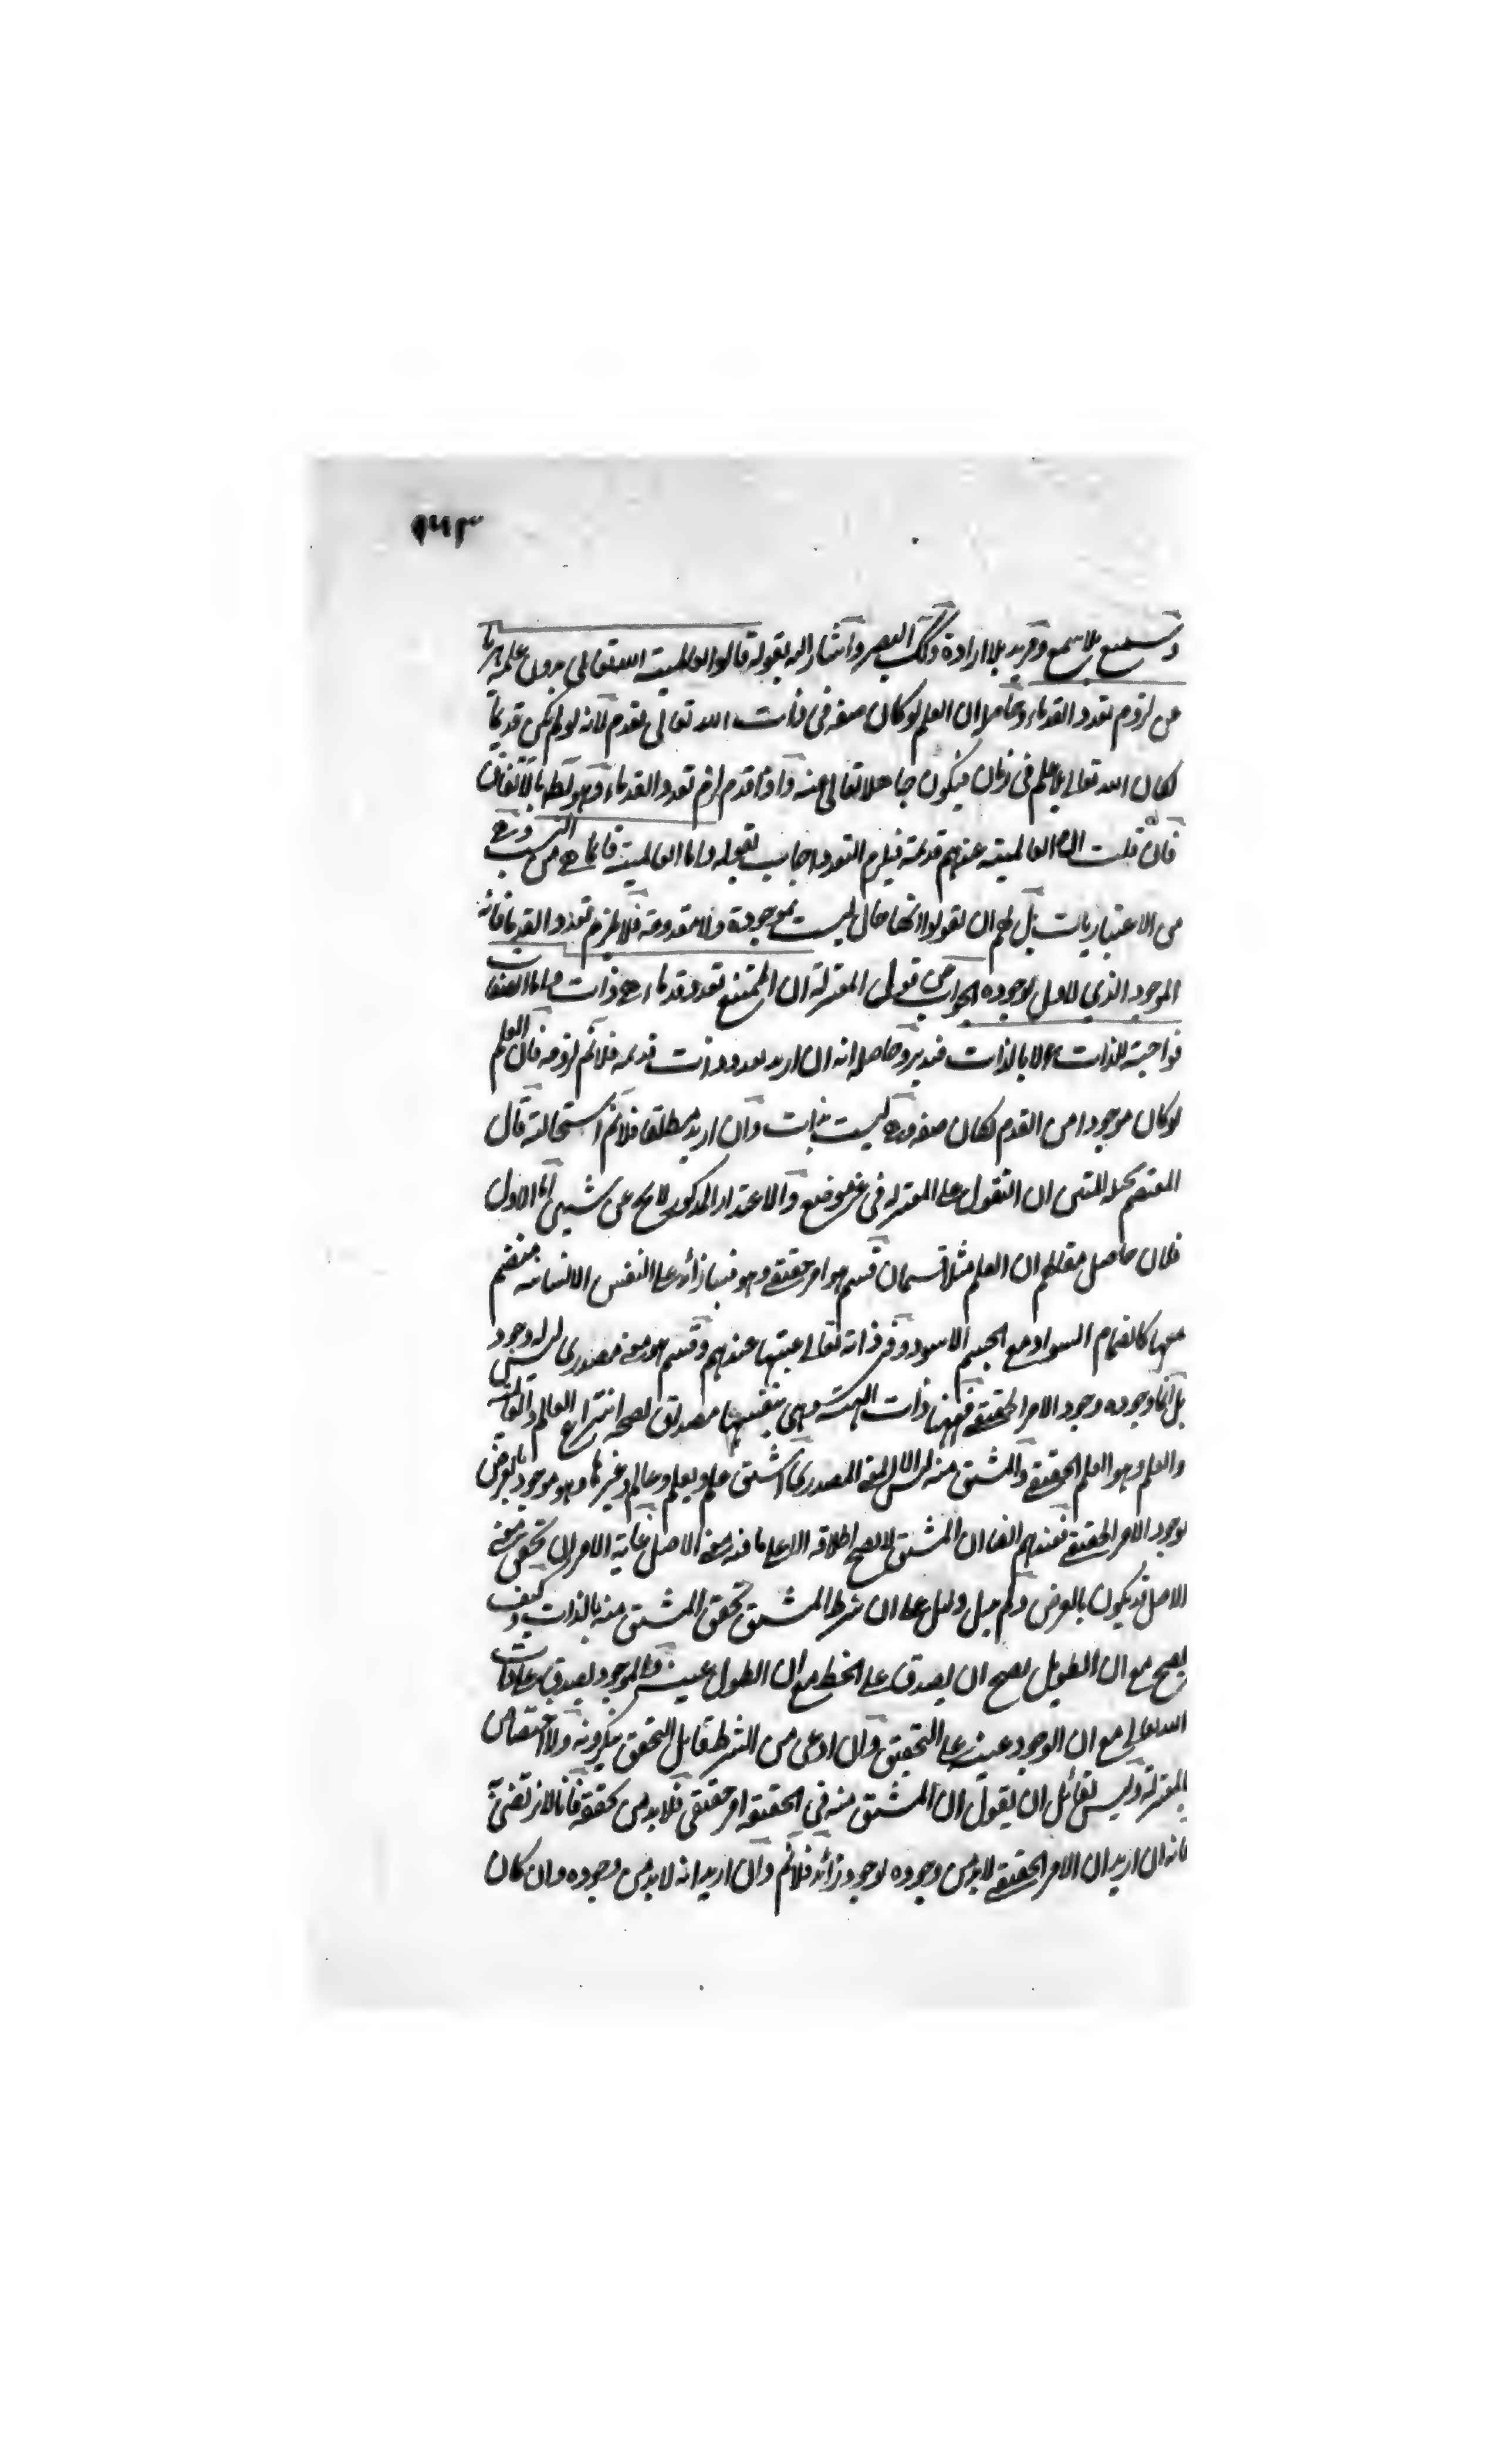 ١٦٣
وسميع بلا سمع ومريد بلا ارادة وكك البصر واشار اليه بقوله قالوا بعالمية الله تعالى بدون علمه هربا
من لزوم تعدد القدماء وحاصله ان العلم لو كان صفة في ذات الله تعالى لقدم لانه لو لم يكن قديما
لكان الله تعالى بلا علم في زمان فيكون جاهلا تعالى عنه واذا قدم لزم تعدد القدماء وهو بط بالاتفاق
فان قلت ان العالمية عندهم قديمة فيلزم التعدد اجاب بقوله واما العالمية فانما هي من النسب وهي
من الاعتباريات بل لهم ان يقولوا انها حال ليست بموجودة ولا معدومة فلا يلزم تعدد القدماء فانه
الموجود الذي لا اول لوجوده الجواب من قبل المعتزلة ان الممتنع تعدد قدماء هي ذوات واما الصفات
فواجبة للذات لا بالذات فتدبر وحاصله انه ان اريد تعدد ذوات قديمة فلانم لزومه فان العلم
لو كان موجودا من القدم لكان صفة وهي ليست بذات وان اريد مطلقا فلانم استحالته قال
المعتصم بحبله المتين ان التقول على المعتزلة في غير موضع والاعتذار المذكور لا يخ عن شيء اما الاول
فلان حاصل مقالهم ان العلم مثلا قسمان قسم هو امر حقيقي وهو فينا زائد على النفس الانسانية منضم
معها كانضمام السواد مع الجسم الاسود وفي ذاته تعالى عينها عندهم وقسم هو معنى مصدري ليس له وجود
بل انما وجوده وجود الامر الحقيقي فههنا ذات الهية وهي بنفسها مصداق لصحة انتزاع العالم والعالمية
والعلم وهو العلم الحقيقي والمشتق منه ليس الا المعنى المصدري اشتق علم ويعلم وعالم وغيرها وهو موجود بالعرض
بوجود الامر الحقيقي فعندهم ايضا ان المشتق لا يصح اطلاقه الا على ما فيه معنى الاصل غاية الامر ان تحقق معنى
الاصل قد يكون بالعرض ولم يدل دليل على ان شرط المشتق تحقق المشتق منه بالذات وكيف
يصح مع ان الطويل يصح ان يصدق على الخط مع ان الطول عينه والموجود يصدق على ذات
الله تعالى مع ان الوجود عينه على التحقيق وان ادعى من الشرط فاهل التحقق ينكرونه ولا اختصاص
بالمعتزلة وليس لقائل ان يقول ان المشتق منه في الحقيقة امر حقيقي فلا بد من تحققه فانا لا نرتضي
فانه ان اريد ان الامر الحقيقي لا بد من وجوده بوجود زائد فلانم وان اريد انه لا بد من وجوده وان كان